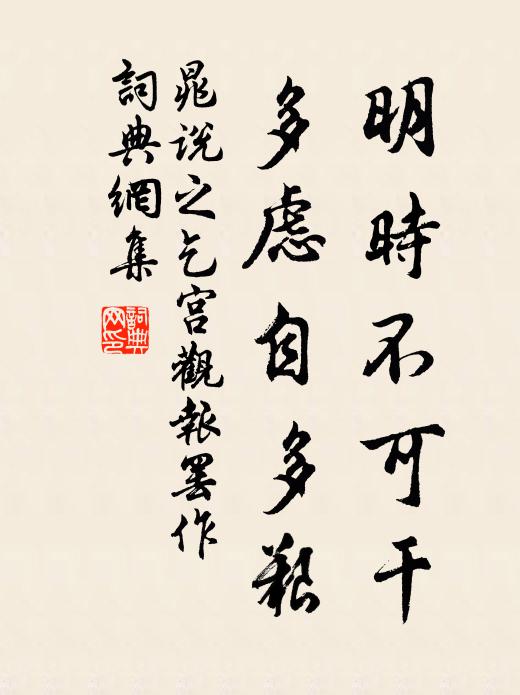 明時不可干
多慮自多艱
晁說之乞宮觀報罷作
詞典網集
詞典网印